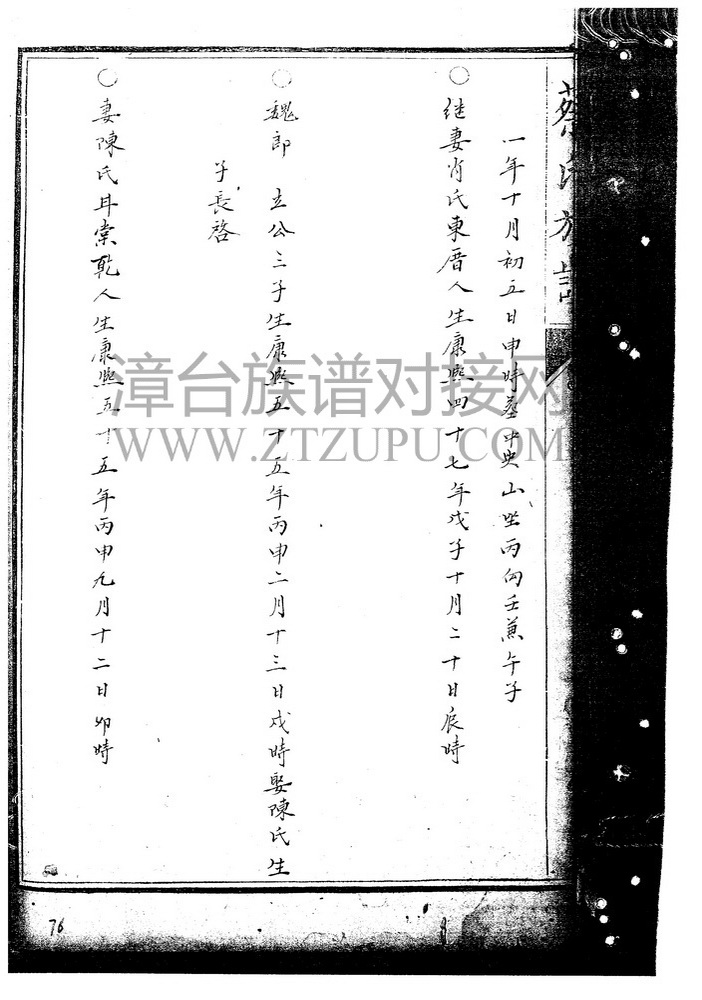 蔡氏族譜
一年十月初五日申時葬中央山坐丙向壬兼午子
○继妻肖氏東厝人生康熙四十七年戊子十月二十日辰時
○魏郎 立公三子生康熙五十五年丙申二月十三日戌時娶陳氏生
子長啓
○妻陳氏井棠乾人生康熙五十五年丙申九月十二日卯時
漳台族谱对接网
WWW.ZTZUPU.COM
76